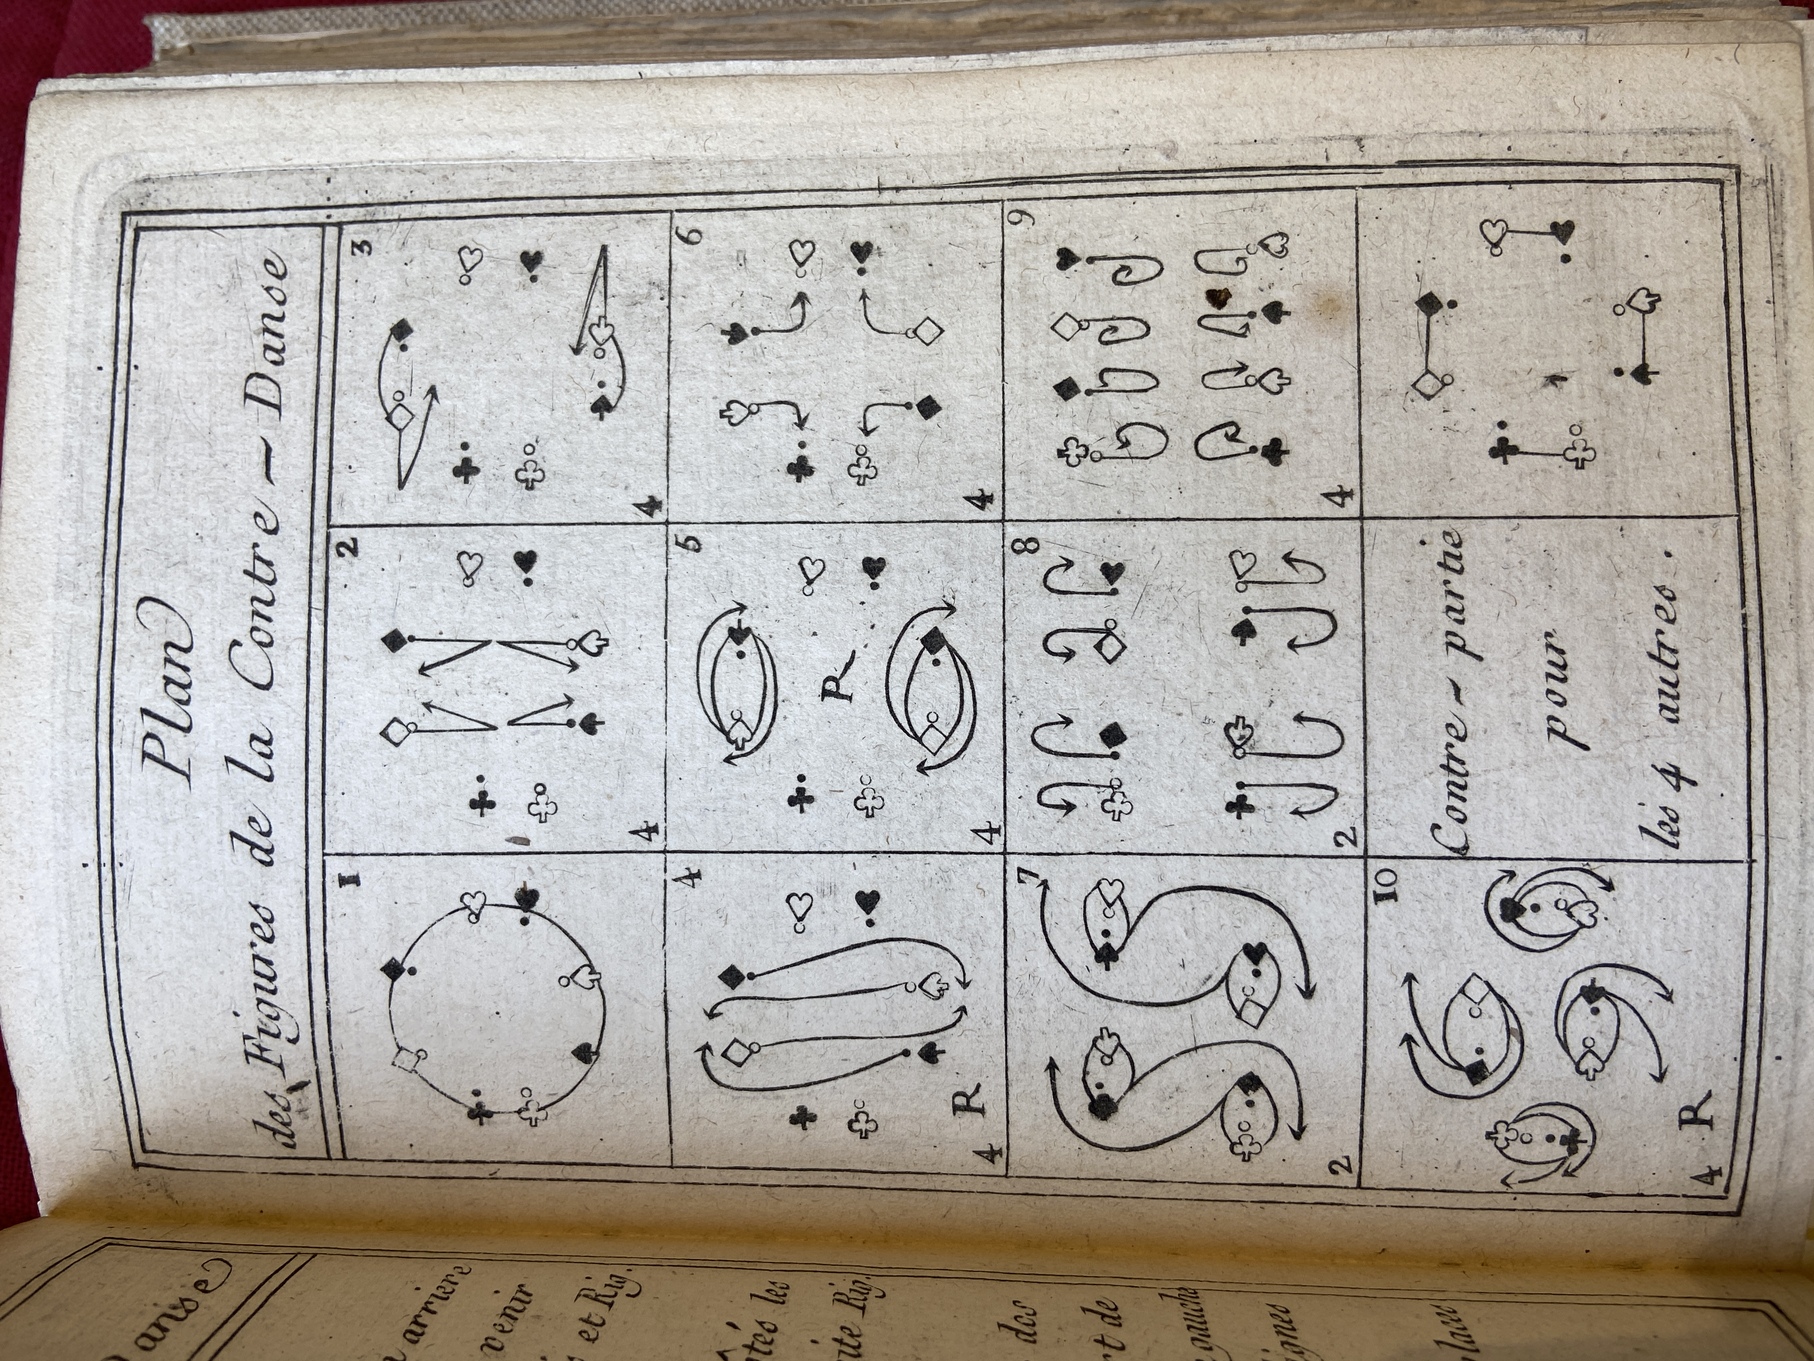 Plan
des Figures de la Contre ~ Danse
1
2
4
3
4
4
4 R
5
R
4
6
4
7
2
8
2
9
4
10
4 R
Contre ~ partie
pour
les 4 autres.
anse
arriere
venir
et Rig.
tés les
ite Rig.
des
rt de
gauche
ignes
laces